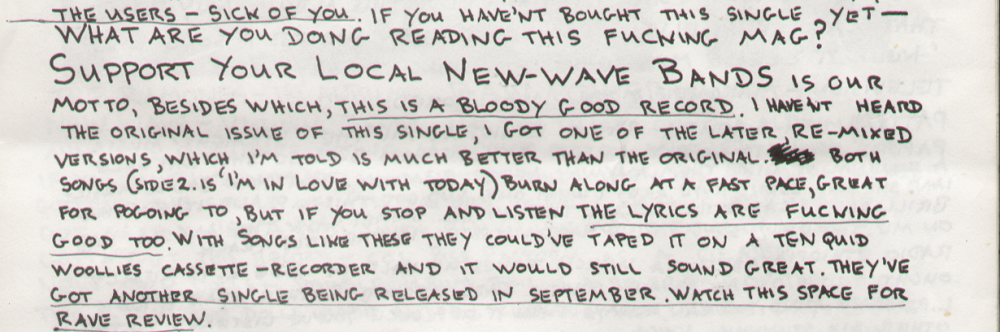 THE USERS - SICK OF YOU. IF YOU HAVE'NT BOUGHT THIS SINGLE YET -
WHAT ARE YOU DOING READING THIS FUCKING MAG?
SUPPORT YOUR LOCAL NEW-WAVE BANDS IS OUR
MOTTO, BESIDES WHICH, THIS IS A BLOODY GOOD RECORD. I HAVEN'T HEARD
THE ORIGINAL ISSUE OF THIS SINGLE, I GOT ONE OF THE LATER, RE-MIXED
VERSIONS, WHICH I'M TOLD IS MUCH BETTER THAN THE ORIGINAL. BOTH
SONGS (SIDE 2. IS 'I'M IN LOVE WITH TODAY) BURN ALONG AT A FAST PACE, GREAT
FOR POGOING TO, BUT IF YOU STOP AND LISTEN THE LYRICS ARE FUCKING
GOOD TOO. WITH SONGS LIKE THESE THEY COULD'VE TAPED IT ON A TEN QUID
WOOLLIES CASSETTE-RECORDER AND IT WOULD STILL SOUND GREAT. THEY'VE
GOT ANOTHER SINGLE BEING RELEASED IN SEPTEMBER. WATCH THIS SPACE FOR
RAVE REVIEW.